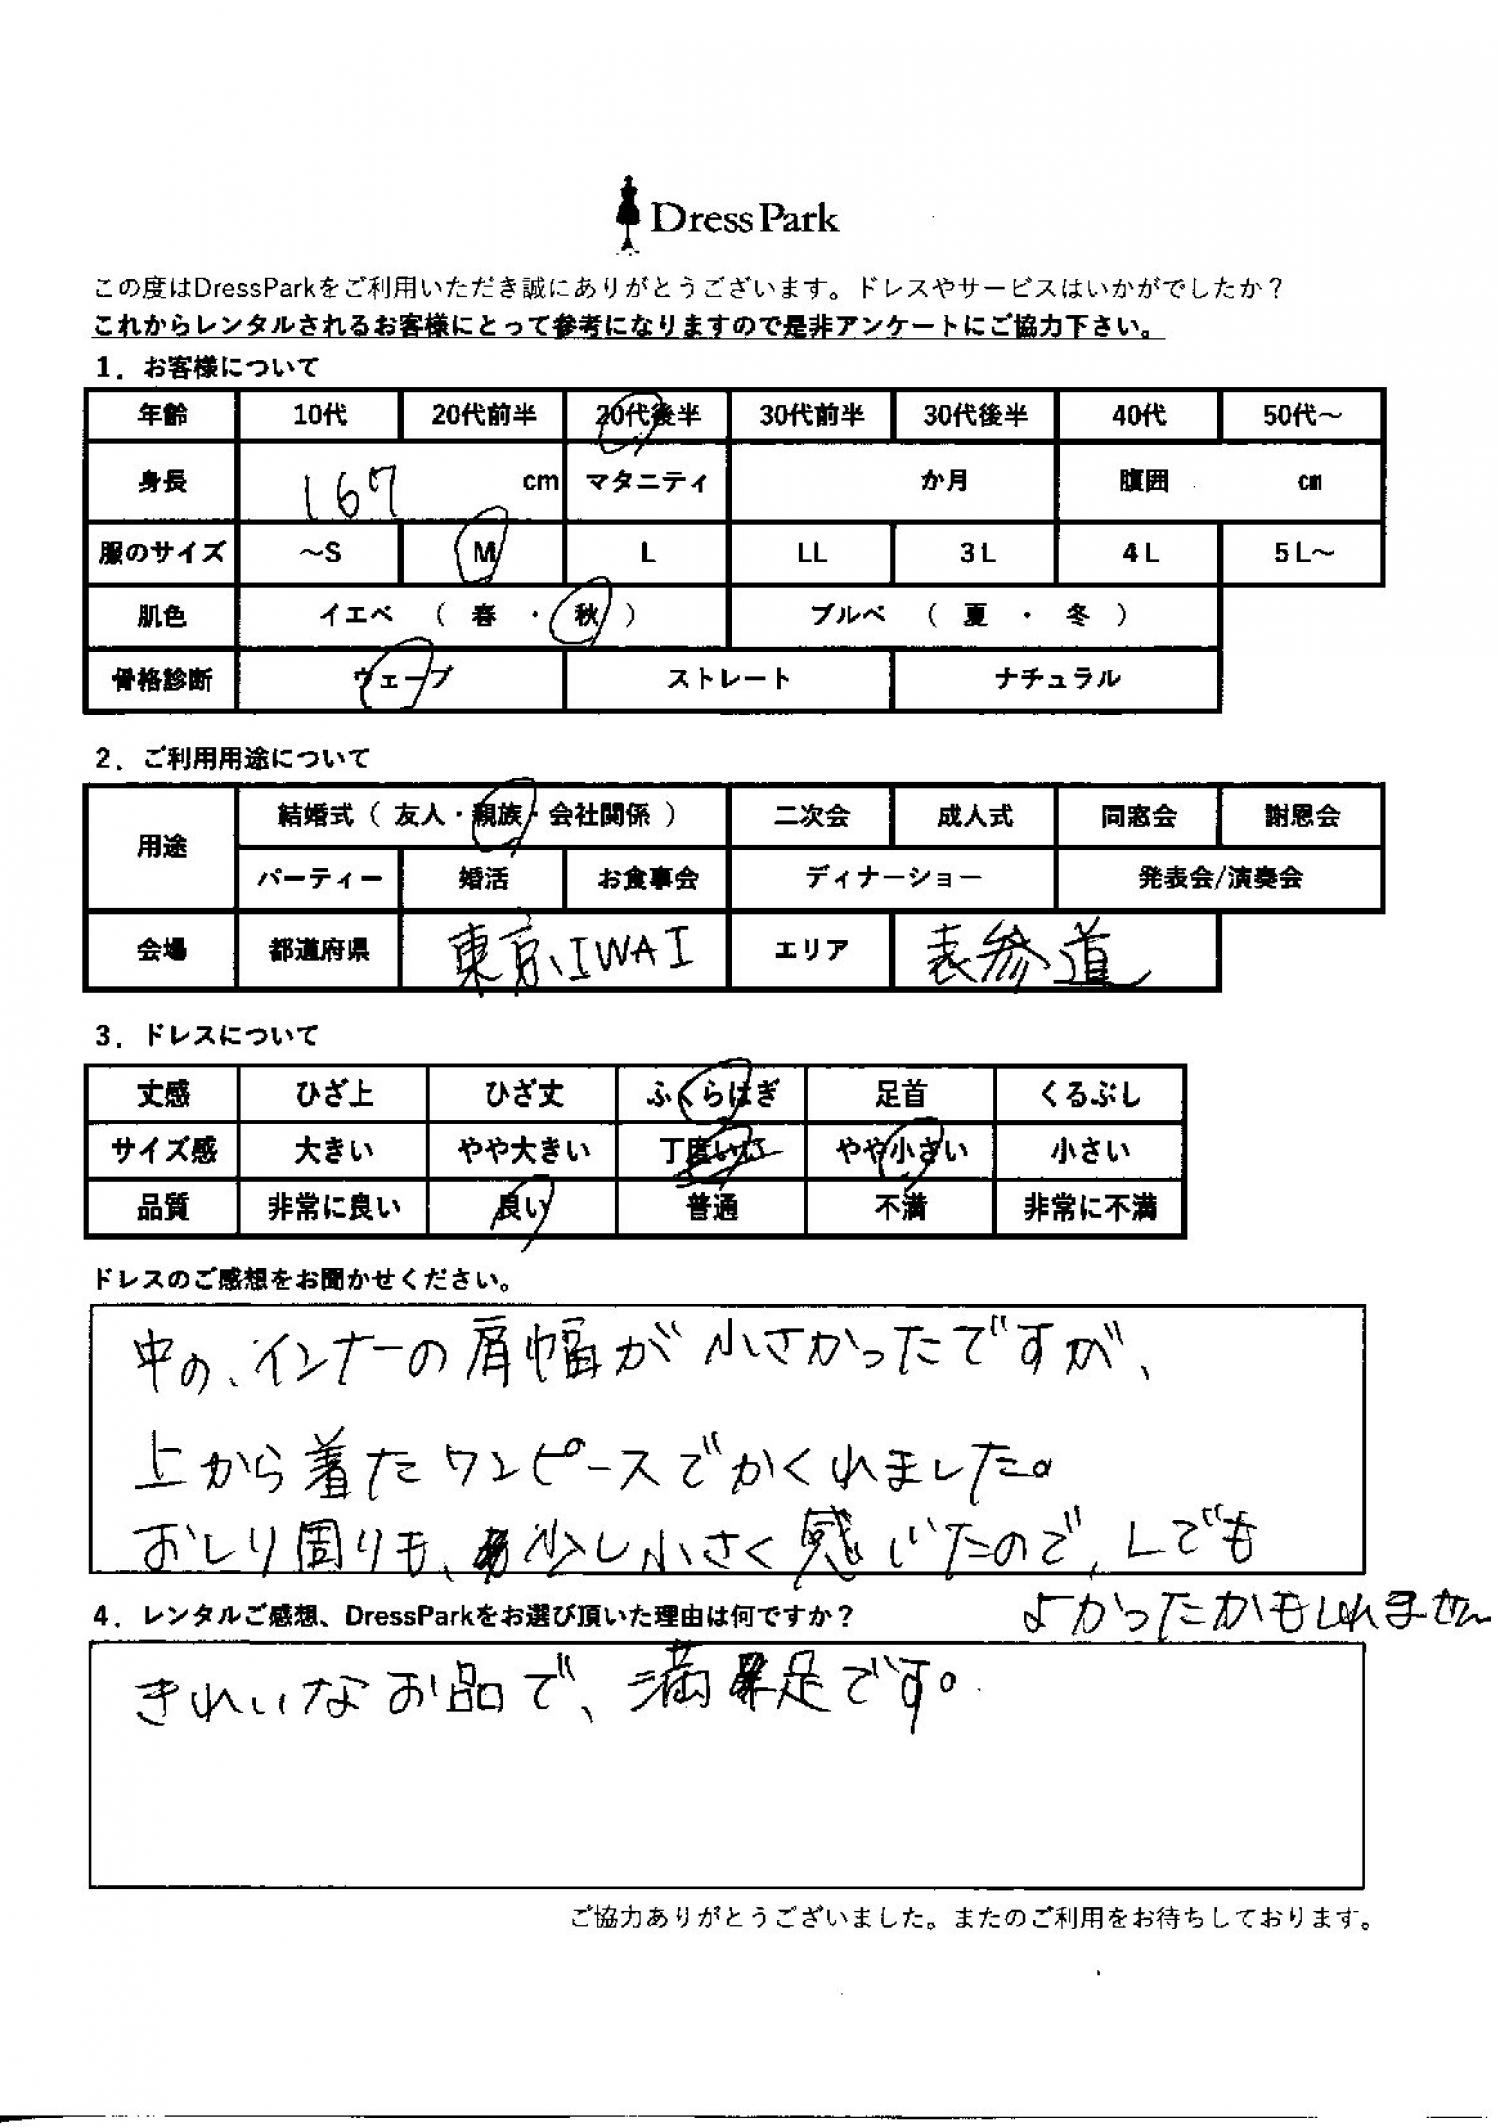 Dress Park
この度はDressParkをご利用いただき誠にありがとうございます。ドレスやサービスはいかがでしたか？
これからレンタルされるお客様にとって参考になりますので是非アンケートにご協力下さい。
1．お客様について
年齢 10代 20代前半 20代後半 30代前半 30代後半 40代 50代～
身長 167 cm マタニティ か月 腹囲 cm
服のサイズ ～S M L LL 3L 4L 5L～
肌色 イエベ （ 春 ・ 秋 ） ブルベ （ 夏 ・ 冬 ）
骨格診断 ウェーブ ストレート ナチュラル
2．ご利用用途について
用途 結婚式（ 友人・親族・会社関係 ） 二次会 成人式 同窓会 謝恩会
パーティー 婚活 お食事会 ディナーショー 発表会/演奏会
会場 都道府県 東京、IWAI エリア 表参道
3．ドレスについて
丈感 ひざ上 ひざ丈 ふくらはぎ 足首 くるぶし
サイズ感 大きい やや大きい 丁度いい やや小さい 小さい
品質 非常に良い 良い 普通 不満 非常に不満
ドレスのご感想をお聞かせください。
中の、インナーの肩幅が小さかったですが、
上から着たワンピースでかくれました。
おしり周りも、少し小さく感じたので、Lでも
よかったかもしれません
4．レンタルご感想、DressParkをお選び頂いた理由は何ですか？
きれいなお品で、満足です。
ご協力ありがとうございました。またのご利用をお待ちしております。